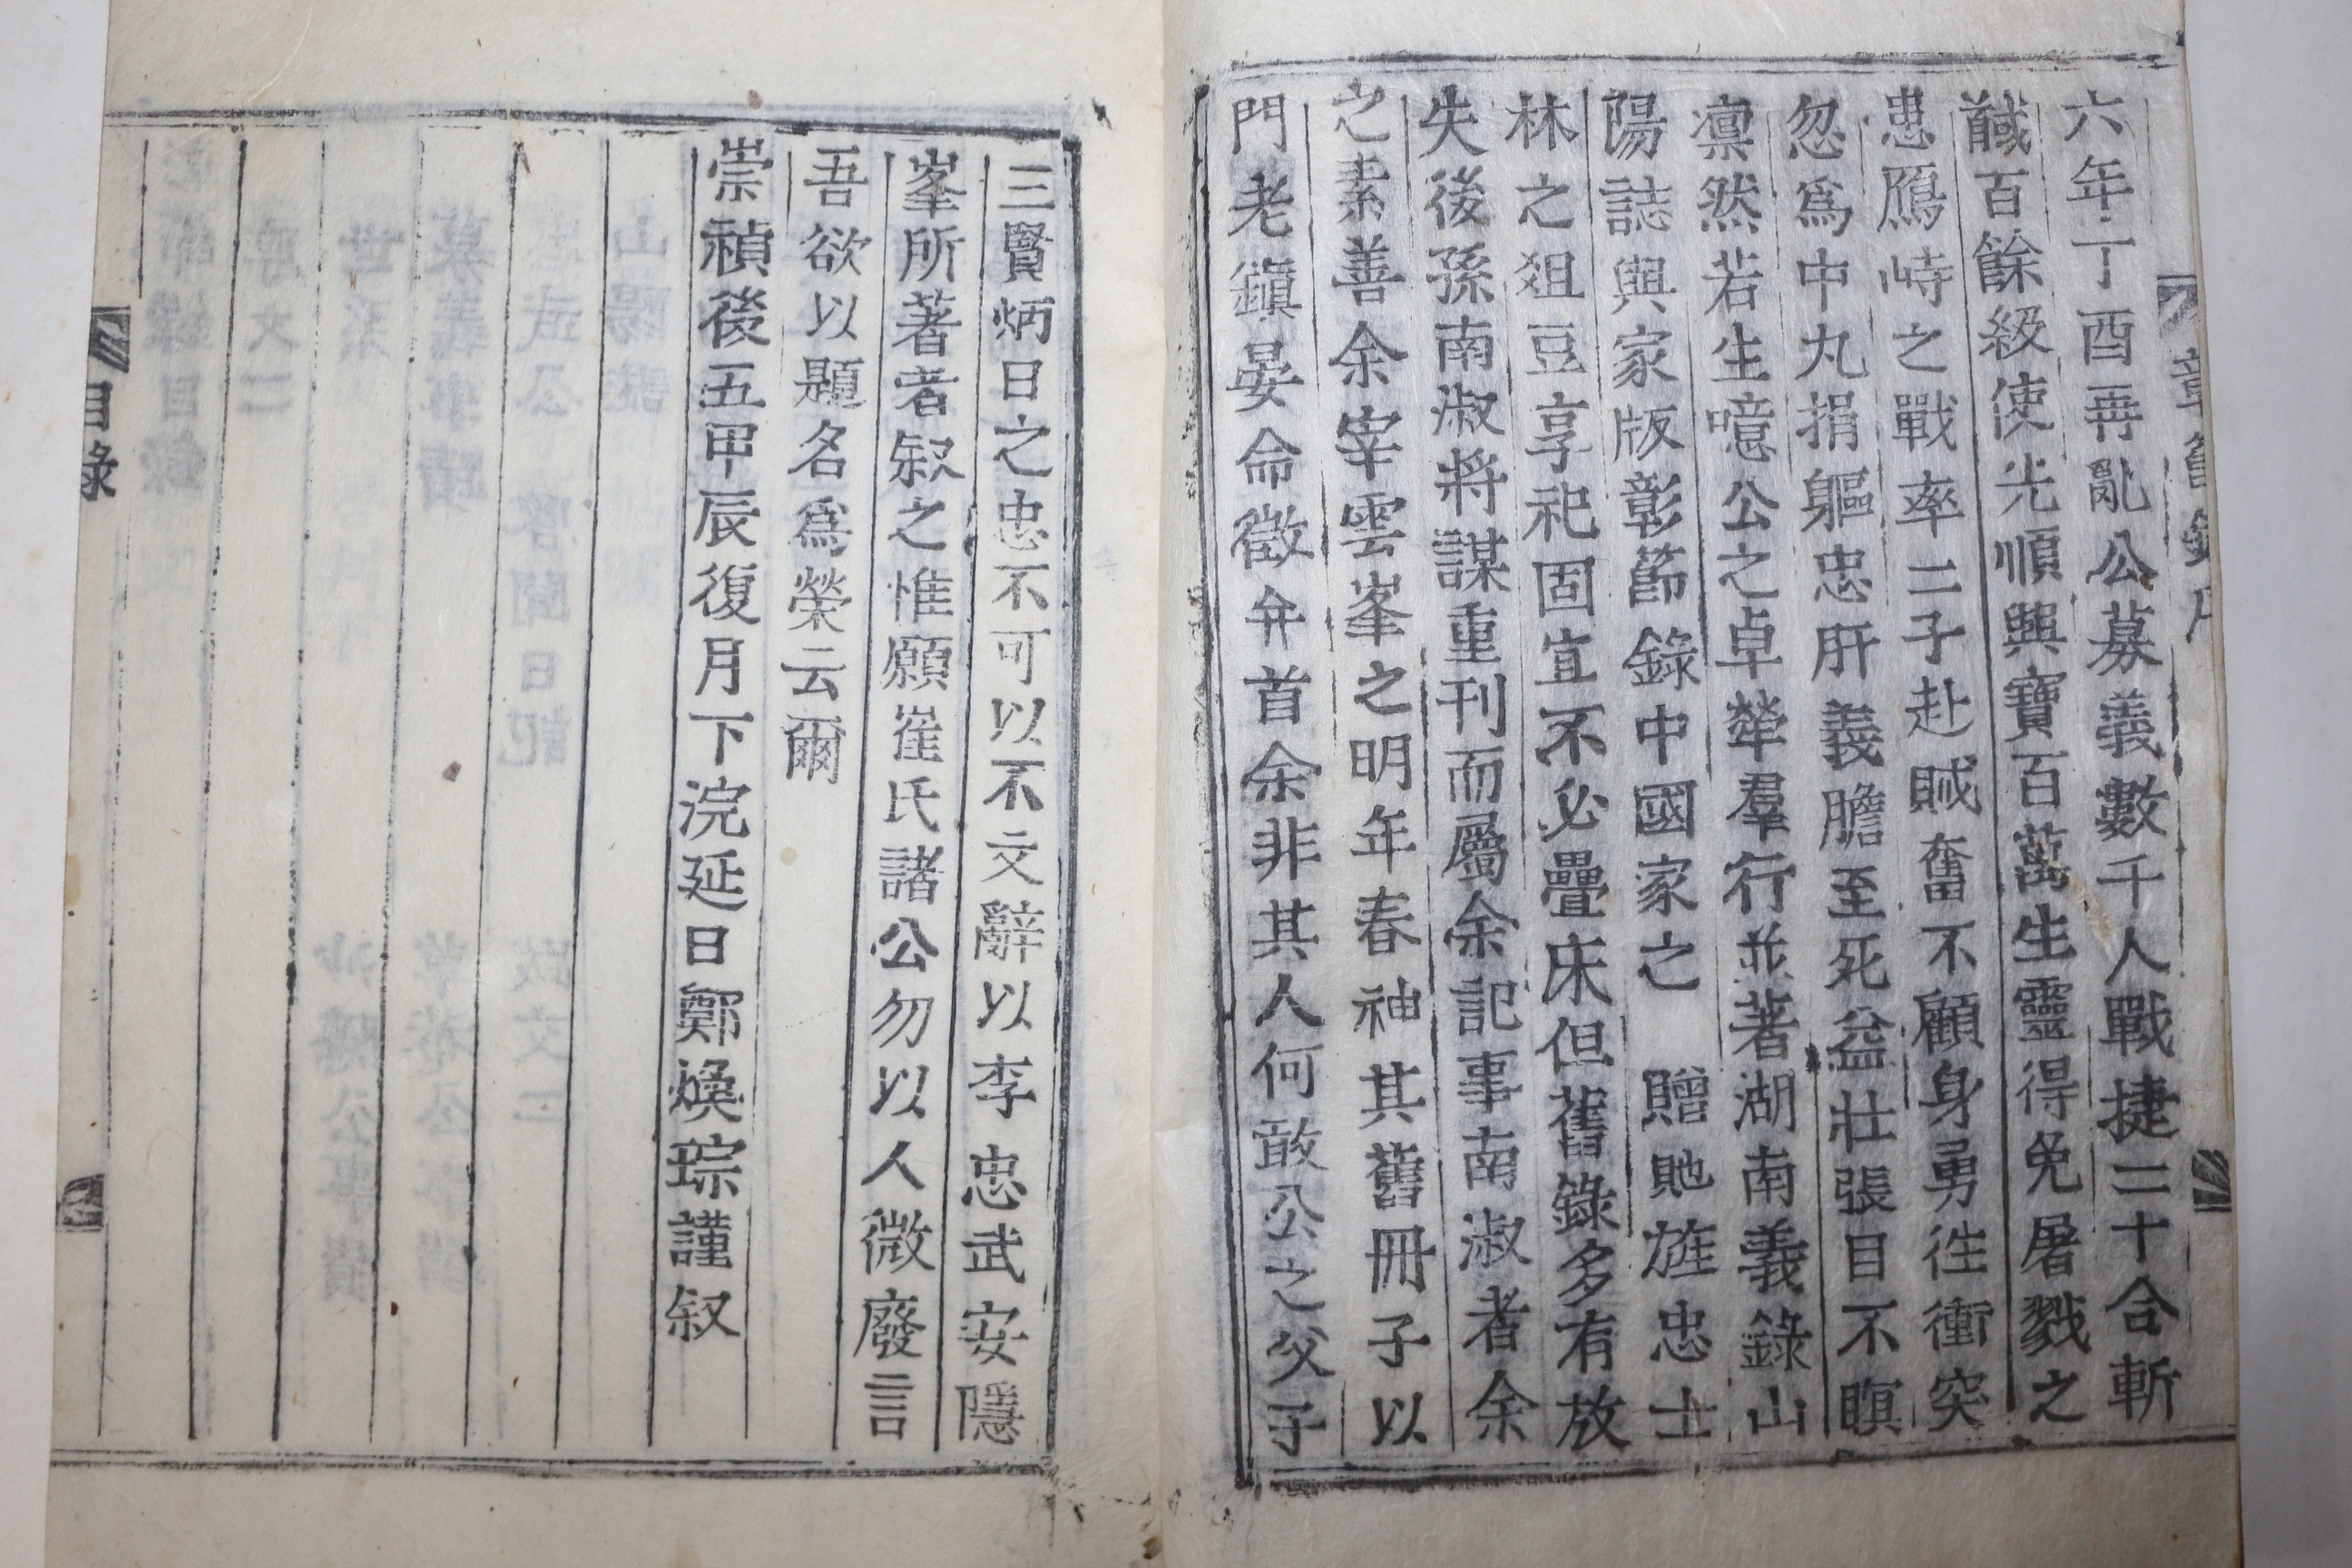 六年丁酉再亂公募義數千人戰捷二十合斬
馘百餘級使光順興寶百萬生靈得免屠戮之
患鴈峙之戰率二子赴賊奮不顧身勇往衝突
忽爲中丸捐軀忠肝義膽至死益壯張目不瞑
凛然若生噫公之卓犖羣行並著湖南義錄山
陽誌與家版彰節錄中國家之 贈貤旌忠士
林之俎豆享祀固宜不必疊床但舊錄多有放
失後孫南淑將謀重刊而屬余記事南淑者余
之素善余宰雲峯之明年春神其舊冊子以
門老鎭晏命徵弁首余非其人何敢公之父子
三賢炳日之忠不可以不文辭以李忠武安隱
峯所著者叙之惟願崔氏諸公勿以人微廢言
吾欲以題名爲榮云爾
崇禎後五甲辰復月下浣延日鄭煥琮謹叙
目錄